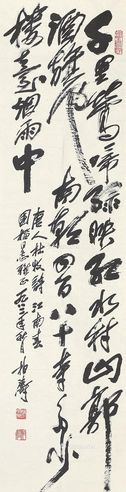 千里鶯啼綠映紅水村山郭
酒旗風南朝四百八十寺多少
樓臺烟雨中
唐人杜牧詩江南春